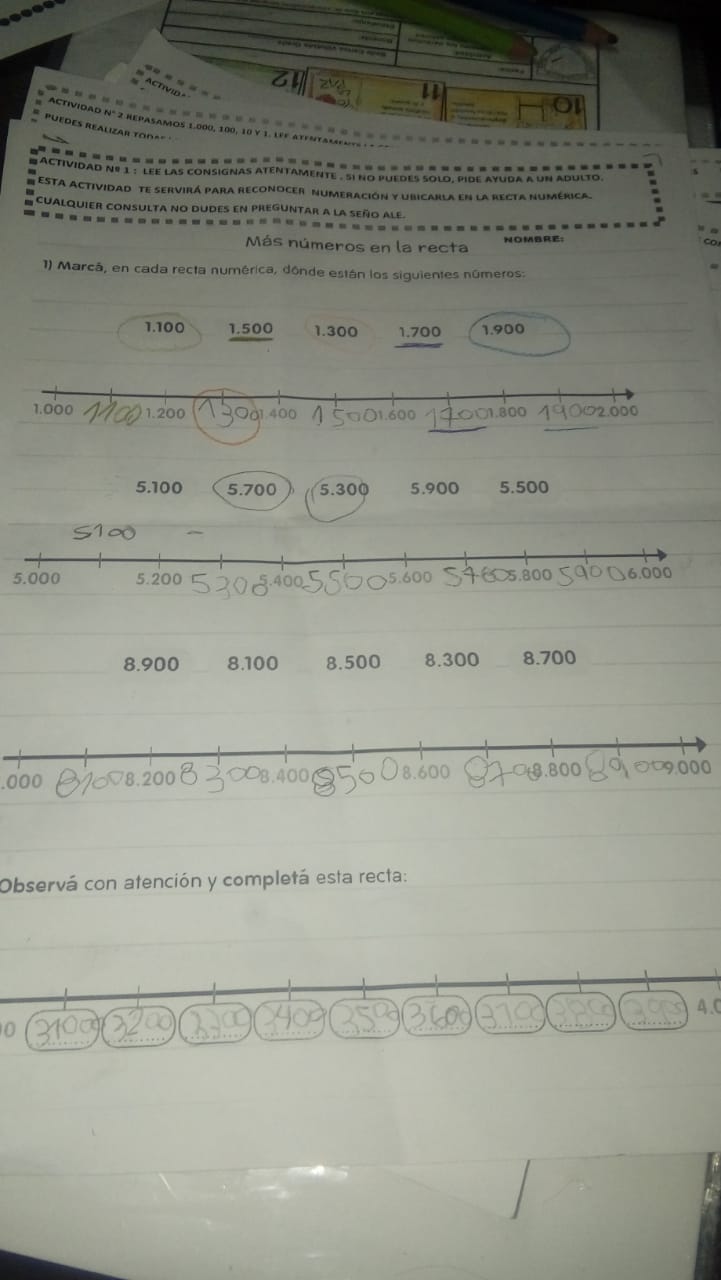 12
11
10
ACTIVIDAD Nº 2 REPASAMOS 1.000, 100, 10 Y 1. LEE ATENTAMENTE
PUEDES REALIZAR
ACTIVIDAD Nº 1 : LEE LAS CONSIGNAS ATENTAMENTE . SI NO PUEDES SOLO, PIDE AYUDA A UN ADULTO.
ESTA ACTIVIDAD TE SERVIRÁ PARA RECONOCER NUMERACIÓN Y UBICARLA EN LA RECTA NUMÉRICA.
CUALQUIER CONSULTA NO DUDES EN PREGUNTAR A LA SEÑO ALE.
Más números en la recta NOMBRE:
1) Marcá, en cada recta numérica, dónde están los siguientes números:
1.100 1.500 1.300 1.700 1.900
1.000 1100 1.200 1300 1.400 1500 1.600 1700 1.800 1900 2.000
5.100 5.700 5.300 5.900 5.500
5100
5.000 5.200 5300 5.400 5500 5.600 5700 5.800 5900 6.000
8.900 8.100 8.500 8.300 8.700
.000 8100 8.200 8300 8.400 8500 8.600 8700 8.800 8900 9.000
Observá con atención y completá esta recta:
0 3100 3200 3300 3400 3500 3600 3700 3800 3900 4.0